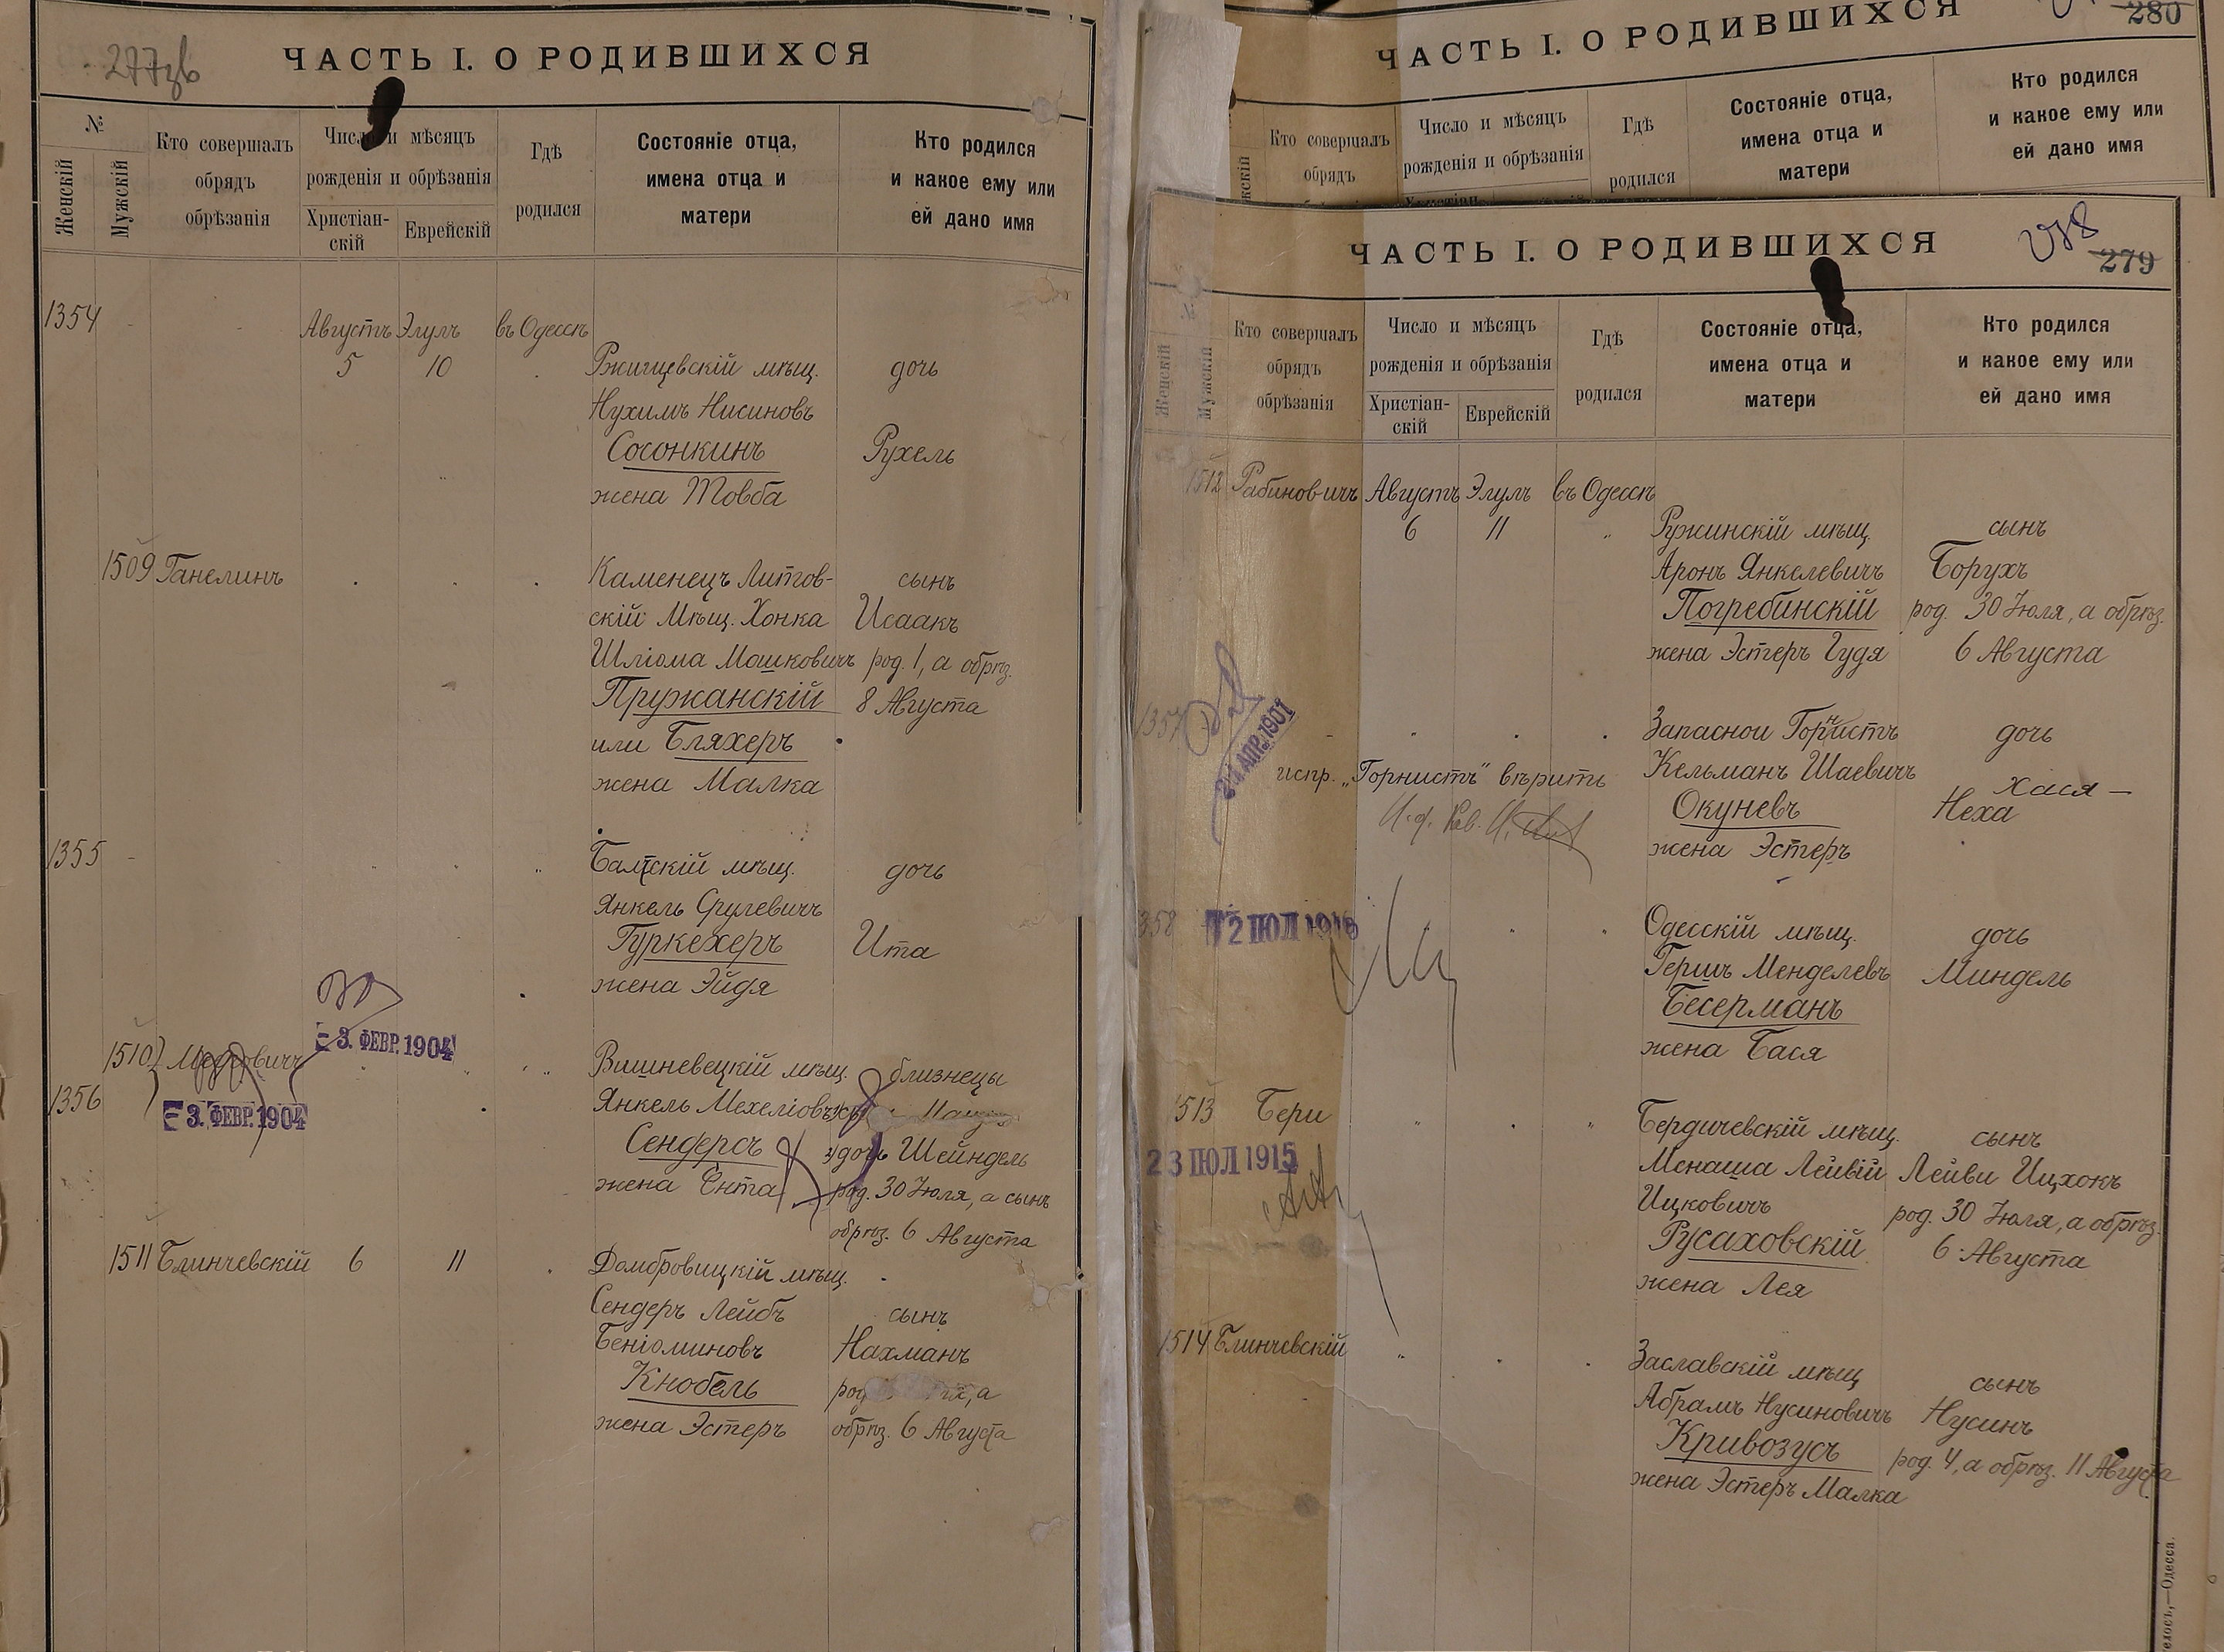 277зв
ЧАСТЬ I. О РОДИВШИХСЯ
№
Женскій
Мужскій
Кто совершалъ
обрядъ
обрѣзанія
Число и мѣсяцъ
рожденія и обрѣзанія
Христіан-
скій
Еврейскій
Гдѣ
родился
Состояніе отца,
имена отца и
матери
Кто родился
и какое ему или
ей дано имя
1354
Августъ Элулъ въ Одессѣ
5 10
Ржищевскій мѣщ. дочь
Нухимъ Нисиновъ
Сосонкинъ Рухель
жена Товба
1509 Ганелинъ
Каменецъ Литов- сынъ
скій Мѣщ. Хонка Исаакъ
Шліома Мошковичъ род. 1, а обрѣз.
Пружанскій 8 Августа
или Бляхеръ
жена Малка
1355
Балтскій мѣщ. дочь
Янкель Срулевичъ
Гуркехеръ Ита
жена Эйдя
3. ФЕВР. 1904
1510
1356
3. ФЕВР. 1904
Вишневецкій мѣщ. близнецы
Янкель Мехеліовъ
Сендерсъ дочь Шейндель
жена Ента род. 30 Іюля, а сынъ
обрѣз. 6 Августа
1511 Блинчевскій 6 11 Домбровицкій мѣщ.
Сендеръ Лейбъ сынъ
Беніоминовъ Нахманъ
Кнобель а
жена Эстеръ обрѣз. 6 Августа
ЧАСТЬ I. О РОДИВШИХСЯ
280
Кто совершалъ
обрядъ
Число и мѣсяцъ
рожденія и обрѣзанія
Гдѣ
родился
Состояніе отца,
имена отца и
матери
Кто родился
и какое ему или
ей дано имя
ЧАСТЬ I. О РОДИВШИХСЯ
278
279
№
Женскій
Мужскій
Кто совершалъ
обрядъ
обрѣзанія
Число и мѣсяцъ
рожденія и обрѣзанія
Христіан-
скій
Еврейскій
Гдѣ
родился
Состояніе отца,
имена отца и
матери
Кто родился
и какое ему или
ей дано имя
1512 Рабиновичъ Августъ Элулъ въ Одессѣ
6 11
Ружинскій мѣщ. сынъ
Аронъ Янкелевичъ Борухъ
Погребинскій род. 30 Іюля, а обрѣз.
жена Эстеръ Гудя 6 Августа
1357
24 АПР. 1901
Запасной Горнистъ дочь
испр. „Горнистъ" вѣрить
Кельманъ Шаевичъ Хася —
Окуневъ Неха
жена Эстеръ
358
12 ІЮЛ
Одесскій мѣщ. дочь
Гершъ Менделевъ Миндель
Бесерманъ
жена Бася
1513 Бери
23 ІЮЛ 1915
Бердичевскій мѣщ. сынъ
Менаша Лейвій Лейви Ицхокъ
Ицковичъ род. 30 Іюля, а обрѣз.
Русаховскій 6 Августа
жена Лея
1514 Блинчевскій
Заславскій мѣщ сынъ
Абрамъ Нусиновичъ Нусинъ
Кривозусъ род. 4, а обрѣз. 11 Августа
жена Эстеръ Малка
Одесса.